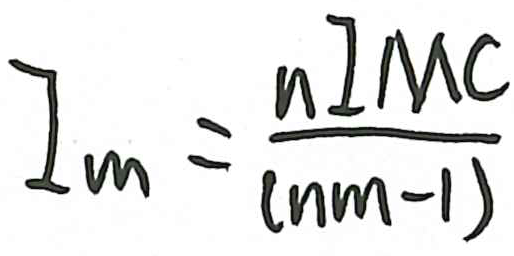 Im = nIMC
(nm-1)